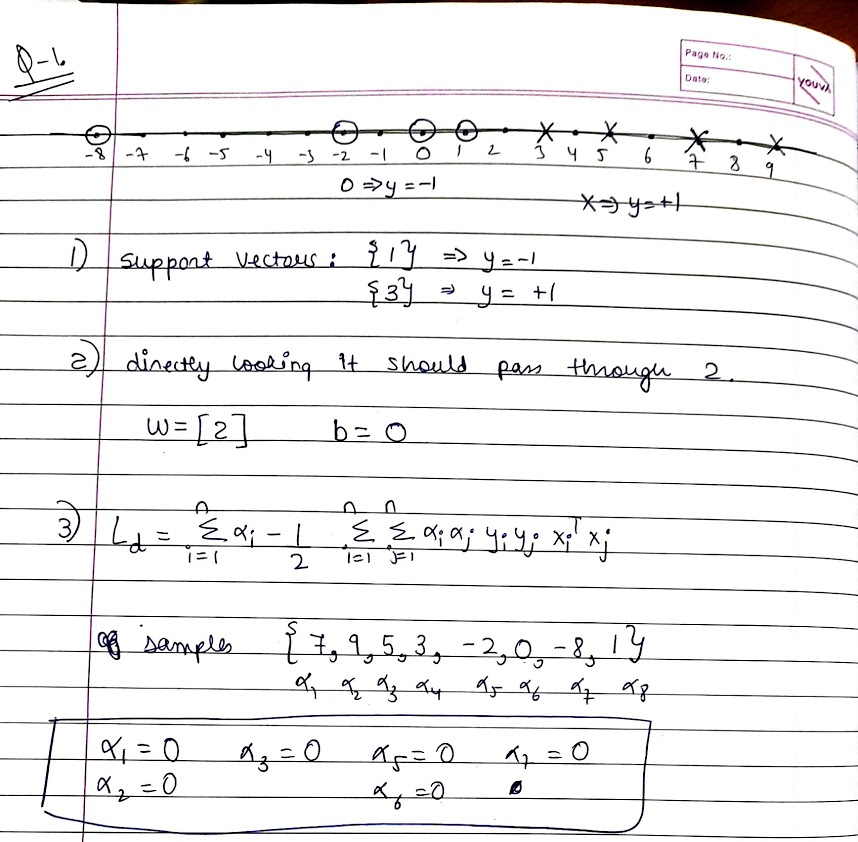 Q-1.
Page No.:
Date:
YOUVA
-8 -7 -6 -5 -4 -3 -2 -1 0 1 2 3 4 5 6 7 8 9
O ⇒ y = -1
X ⇒ y = +1
1) support vectors : {1} ⇒ y = -1
{3} ⇒ y = +1
2) directly looking it should pass through 2.
W = [2] b = 0
3) L_d = Σ_{i=1}^{n} α_i - 1/2 Σ_{i=1}^{n} Σ_{j=1}^{n} α_i α_j y_i y_j x_i^T x_j
samples {7, 9, 5, 3, -2, 0, -8, 1}
α₁ α₂ α₃ α₄ α₅ α₆ α₇ α₈
α₁ = 0 α₃ = 0 α₅ = 0 α₇ = 0
α₂ = 0 α₆ = 0